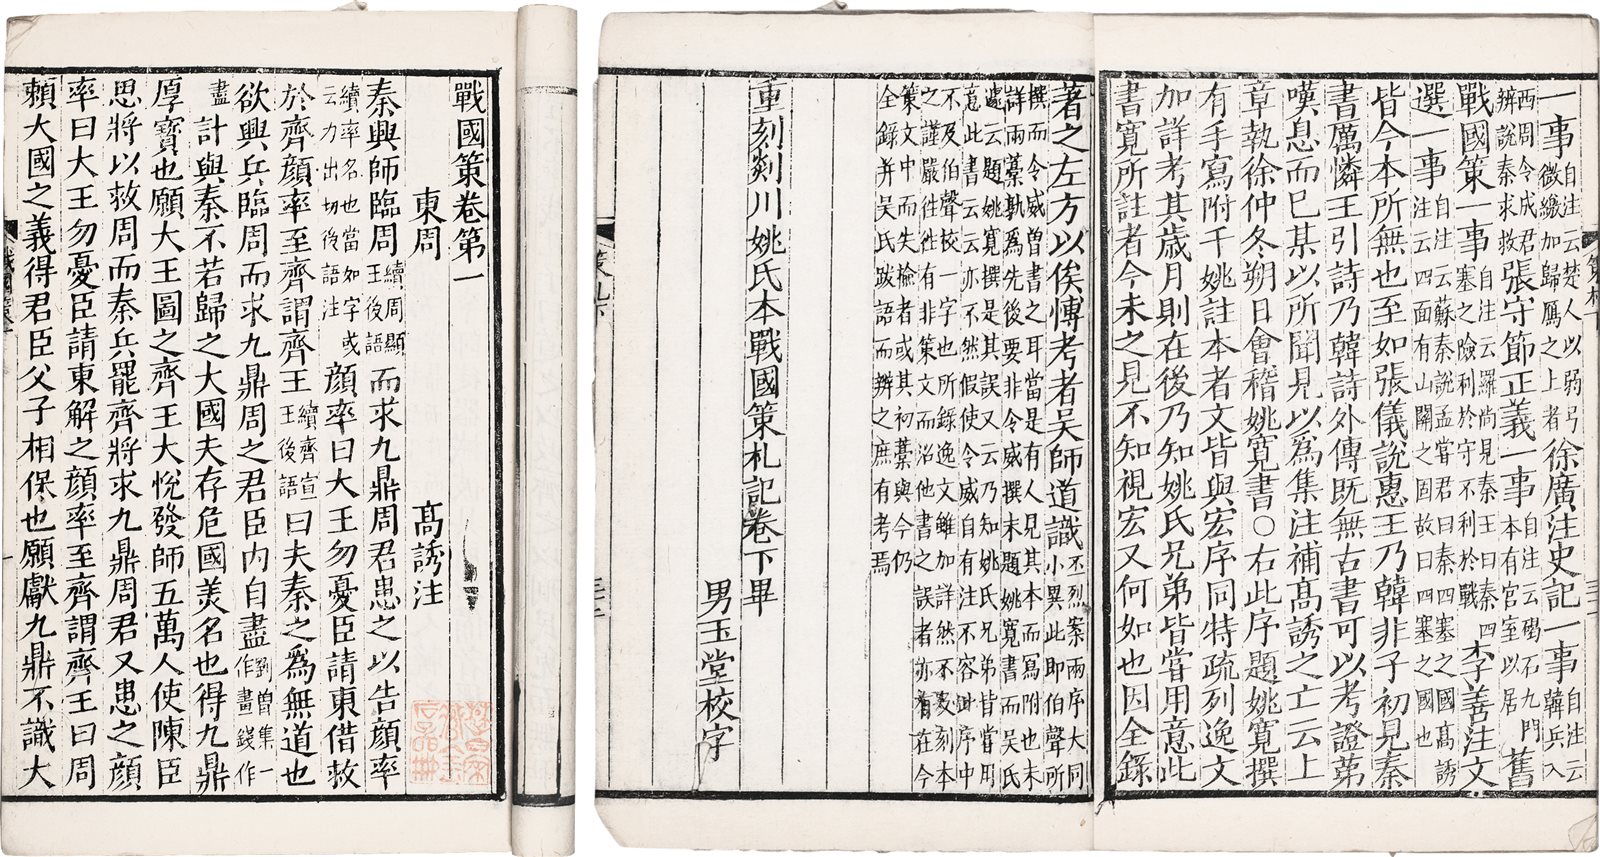 一事自注云楚人以弱弓微繳加歸鴈之上者徐廣注史記一事自注云韓兵入
西周令成君辨說秦求救張守節正義一事自注云碣石九門本有宮室以居舊
戰國策一事自注云羅尚見秦王曰秦四塞之險利於守不利於戰李善注文
選一事自注云蘇秦說孟嘗君曰秦四塞之國高誘注云四面有山關之固故曰四塞之國也
皆今本所無也至如張儀說惠王乃韓非子初見秦
書厲憐王引詩乃韓詩外傳既無古書可以考證第
嘆息而已某以所聞見以為集注補高誘之亡云上
章執徐仲冬朔日會稽姚寬書○右此序題姚寬撰
有手寫附于姚註本者文皆與宏序同特疏列逸文
加詳考其歲月則在後乃知姚氏兄弟皆嘗用意此
書寬所註者今未之見不知視宏又何如也因全錄
著之左方以俟慱考者吳師道識丕烈案兩序大同小異此即伯聲所
撰而令威曽書之耳當是有人見其本而寫附也未
詳兩藁孰爲先後要非令威撰末題姚寬書而吳氏
遽云題姚寬撰是其誤又云乃知姚氏兄弟皆嘗用
意此書云云亦不然假使令威自有注不容此序中
不及伯聲校一字也所錄逸文雖加詳然不刻本
之謹嚴徃徃有非策文而㳂他書之誤者亦有在今
策文中而失檢者或其初藁與今仍
全錄并吳氏跋語而辨之庶有考焉
重刻剡川姚氏本戰國策札記卷下畢
男玉堂校字
戰國策卷第一
東周 高誘注
秦興師臨周續周顯王後語而求九鼎周君患之以告顔率
續率名也當如字或云力出切後語注顔率曰大王勿憂臣請東借救
於齊顔率至齊謂齊王續齊宣王後語曰夫秦之爲無道也
欲興兵臨周而求九鼎周之君臣內自盡劉曾集一作畫錢作
盡計與秦不若歸之大國夫存危國美名也得九鼎
厚寶也願大王圖之齊王大悅發師五萬人使陳臣
思將以救周而秦兵罷齊將求九鼎周君又患之顔
率曰大王勿憂臣請東解之顔率至齊謂齊王曰周
賴大國之義得君臣父子相保也願獻九鼎不識大